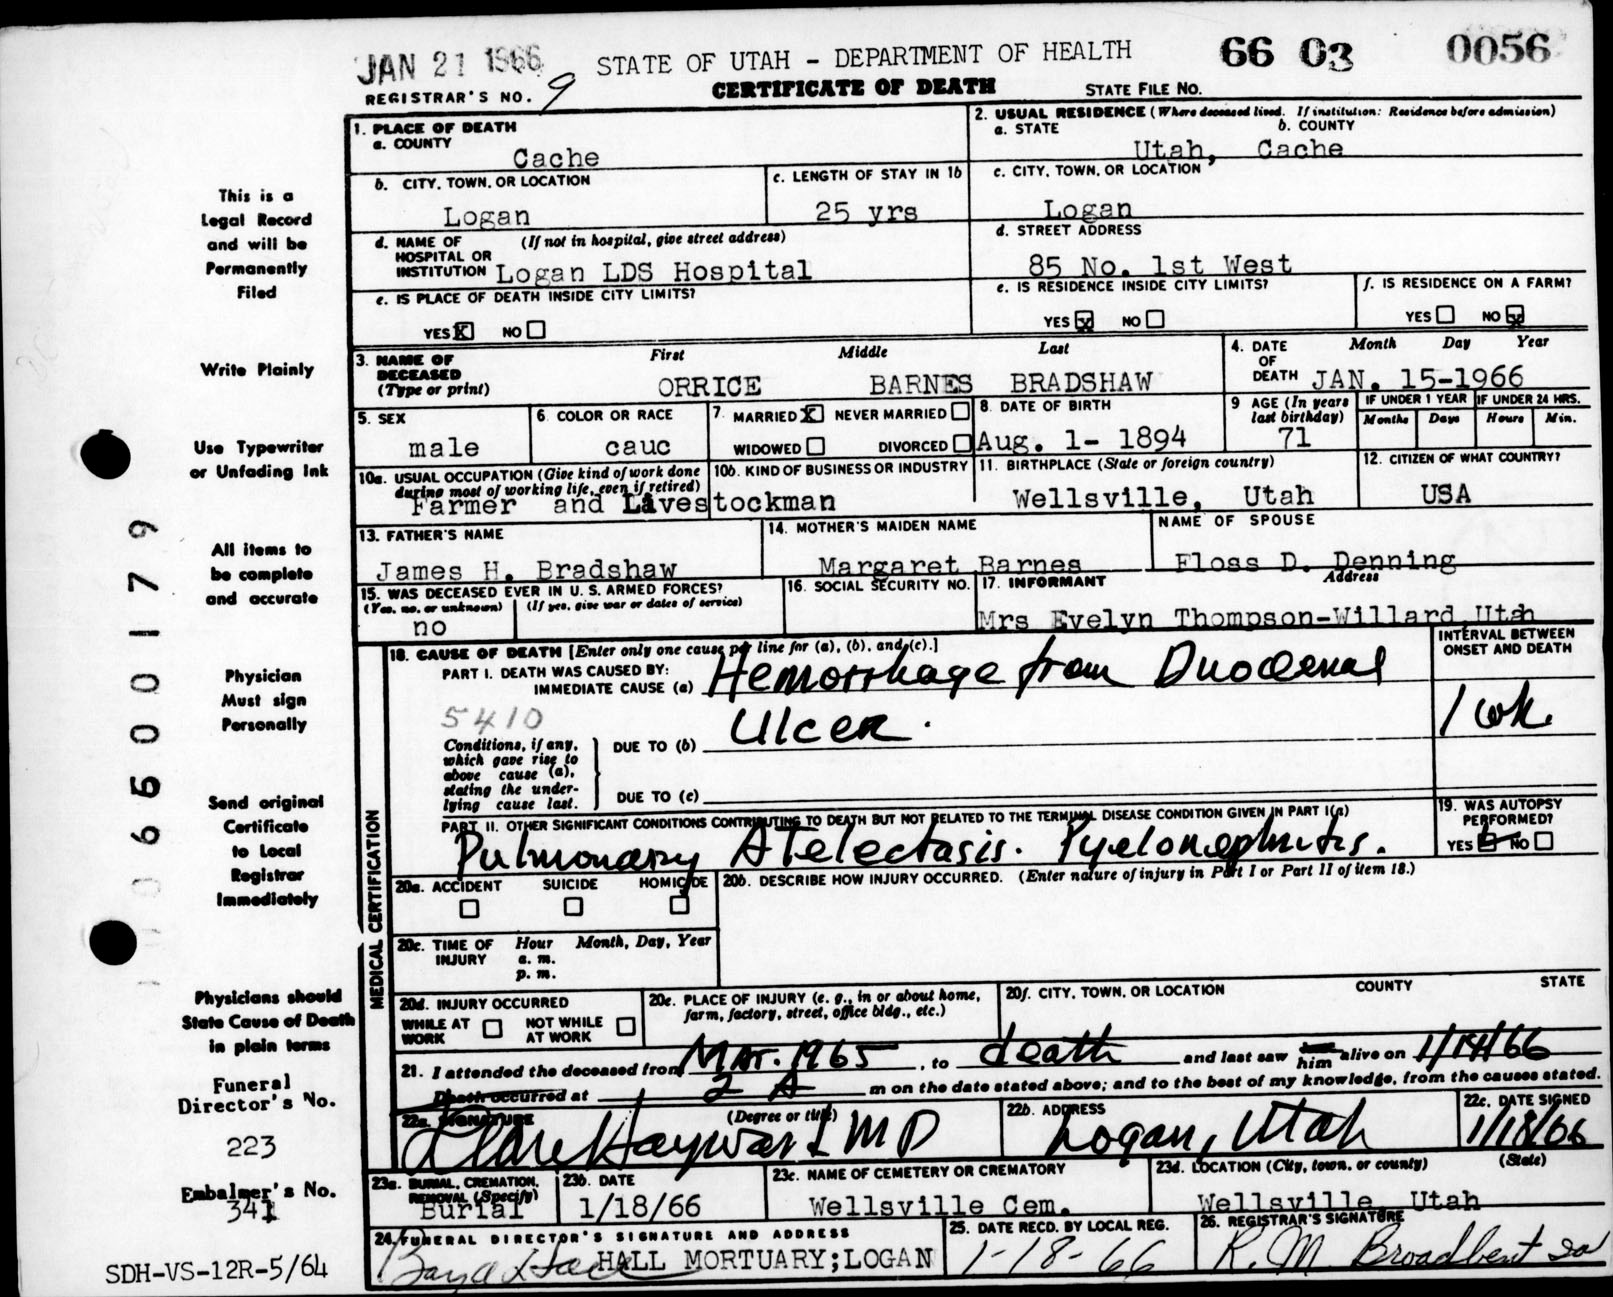 JAN 21 1966 STATE OF UTAH - DEPARTMENT OF HEALTH 66 03 0056
REGISTRAR'S NO. 9 CERTIFICATE OF DEATH STATE FILE NO.
1. PLACE OF DEATH
a. COUNTY
Cache
2. USUAL RESIDENCE (Where deceased lived. If institution: Residence before admission)
a. STATE b. COUNTY
Utah, Cache
b. CITY, TOWN, OR LOCATION
Logan
c. LENGTH OF STAY IN 1b
25 yrs
c. CITY, TOWN, OR LOCATION
Logan
d. NAME OF HOSPITAL OR INSTITUTION (If not in hospital, give street address)
Logan LDS Hospital
d. STREET ADDRESS
85 No. 1st West
e. IS PLACE OF DEATH INSIDE CITY LIMITS?
YES X NO
e. IS RESIDENCE INSIDE CITY LIMITS?
YES x NO
f. IS RESIDENCE ON A FARM?
YES NO x
3. NAME OF DECEASED (Type or print)
First Middle Last
ORRICE BARNES BRADSHAW
4. DATE OF DEATH Month Day Year
JAN. 15-1966
5. SEX
male
6. COLOR OR RACE
cauc
7. MARRIED X NEVER MARRIED
WIDOWED DIVORCED
8. DATE OF BIRTH
Aug. 1- 1894
9 AGE (In years last birthday)
71
IF UNDER 1 YEAR IF UNDER 24 HRS.
Months Days Hours Min.
10a. USUAL OCCUPATION (Give kind of work done during most of working life, even if retired)
10b. KIND OF BUSINESS OR INDUSTRY
Farmer and Livestockman
11. BIRTHPLACE (State or foreign country)
Wellsville, Utah
12. CITIZEN OF WHAT COUNTRY?
USA
13. FATHER'S NAME
James H. Bradshaw
14. MOTHER'S MAIDEN NAME
Margaret Barnes
NAME OF SPOUSE
Floss D. Denning
15. WAS DECEASED EVER IN U. S. ARMED FORCES?
(Yes, no, or unknown) (If yes, give war or dates of service)
no
16. SOCIAL SECURITY NO.
17. INFORMANT Address
Mrs Evelyn Thompson-Willard Utah
18. CAUSE OF DEATH [Enter only one cause per line for (a), (b), and (c).]
PART I. DEATH WAS CAUSED BY:
IMMEDIATE CAUSE (a) Hemorrhage from Duodenal
5410 Ulcer.
INTERVAL BETWEEN ONSET AND DEATH
1 wk
Conditions, if any, which gave rise to above cause (a), stating the underlying cause last.
DUE TO (b)
DUE TO (c)
PART II. OTHER SIGNIFICANT CONDITIONS CONTRIBUTING TO DEATH BUT NOT RELATED TO THE TERMINAL DISEASE CONDITION GIVEN IN PART I(a)
Pulmonary Atelectasis. Pyelonephritis.
19. WAS AUTOPSY PERFORMED?
YES NO
20a. ACCIDENT SUICIDE HOMICIDE
20b. DESCRIBE HOW INJURY OCCURRED. (Enter nature of injury in Part I or Part II of item 18.)
20c. TIME OF INJURY Hour Month, Day, Year
a. m.
p. m.
20d. INJURY OCCURRED
WHILE AT WORK NOT WHILE AT WORK
20e. PLACE OF INJURY (e. g., in or about home, farm, factory, street, office bldg., etc.)
20f. CITY, TOWN, OR LOCATION COUNTY STATE
21. I attended the deceased from Mar. 1965, to death and last saw him alive on 1/14/66
Death occurred at 2 A m on the date stated above; and to the best of my knowledge, from the causes stated.
22a. SIGNATURE (Degree or title)
Clare Hayward MD
22b. ADDRESS
Logan, Utah
22c. DATE SIGNED
1/18/66
23a. BURIAL, CREMATION, REMOVAL (Specify)
Burial
23b. DATE
1/18/66
23c. NAME OF CEMETERY OR CREMATORY
Wellsville Cem.
23d. LOCATION (City, town, or county) (State)
Wellsville Utah
24. FUNERAL DIRECTOR'S SIGNATURE AND ADDRESS
HALL MORTUARY;LOGAN
25. DATE RECD. BY LOCAL REG.
1-18-66
26. REGISTRAR'S SIGNATURE
R. M. Broadbent
MEDICAL CERTIFICATION
This is a
Legal Record
and will be
Permanently
Filed
Write Plainly
Use Typewriter
or Unfading Ink
All items to
be complete
and accurate
Physician
Must sign
Personally
Send original
Certificate
to Local
Registrar
Immediately
Physicians should
State Cause of Death
in plain terms
Funeral
Director's No.
223
Embalmer's No.
341
SDH-VS-12R-5/64